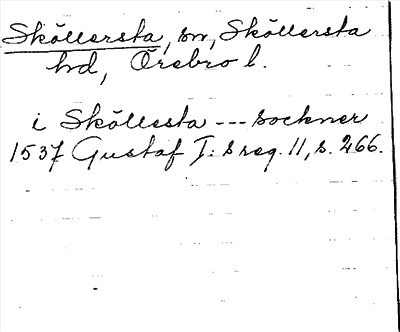 Sköllersta, sn, Sköllersta
hd, Örebro l.
i Sköllesta --- sockner
1537 Gustaf I:s reg. 11, s. 266.